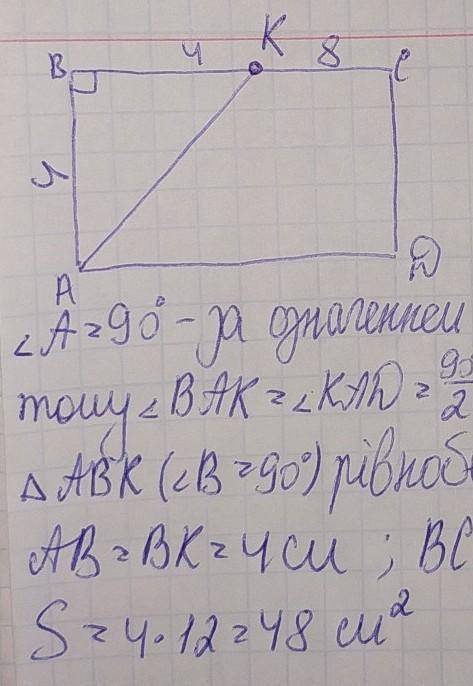 4 K 8
B C
4
A D
∠A = 90° - за означенней
тому ∠BAK = ∠KAD = 90/2
△ABK (∠B = 90°) рівноб
AB = BK = 4 см ; BC
S = 4 · 12 = 48 см²